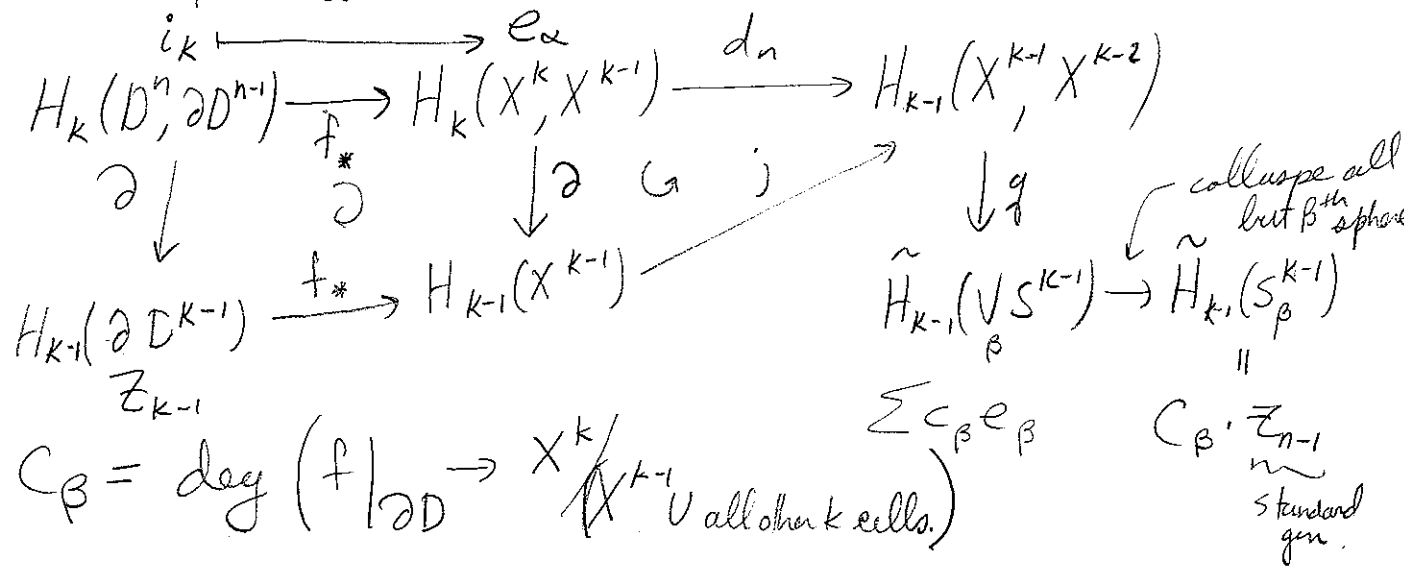 i_k ⟼ e_α
H_k(D^n, ∂D^{n-1}) →f_* H_k(X^k, X^{k-1}) →d_n H_{k-1}(X^{k-1}, X^{k-2})
∂ ∂ j q
collaspe all
but β^{th} sphere
H_{k-1}(∂D^{k-1}) →f_* H_{k-1}(X^{k-1}) H̃_{k-1}(⋁_β S^{k-1}) → H̃_{k-1}(S_β^{k-1})
Z_{k-1} ∑ c_β e_β C_β · Z_{n-1}
C_β = deg (f|_{∂D} → X^k/(X^{k-1} ∪ all other k cells.)
standard
gen.